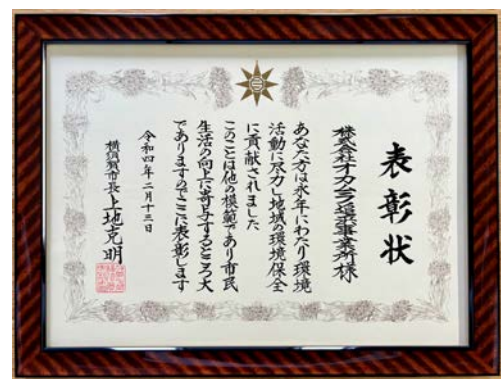 表彰状
株式会社オカムラ追浜事業所様
あなた方は永年にわたり環境
活動に尽力し地域の環境保全
に貢献されました
このことは他の模範であり市民
生活の向上に寄与するところ大
でありますのでここに表彰します
令和四年二月十三日
横須賀市長上地克明